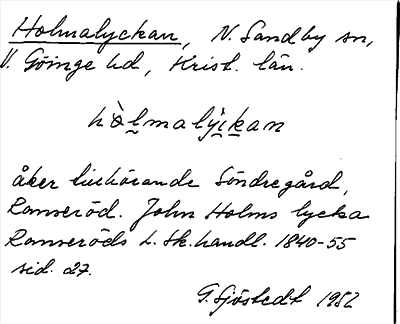 Holmalyckan, N. Sandby sn,
V. Göinge hd, Krist. län.
hòlmalỳckan
åker tillhörande Söndregård,
Ranseröd. John Holms lycka
Ranseröds L. Sk. handl. 1840-55
sid. 27.
G. Sjöstedt 1952